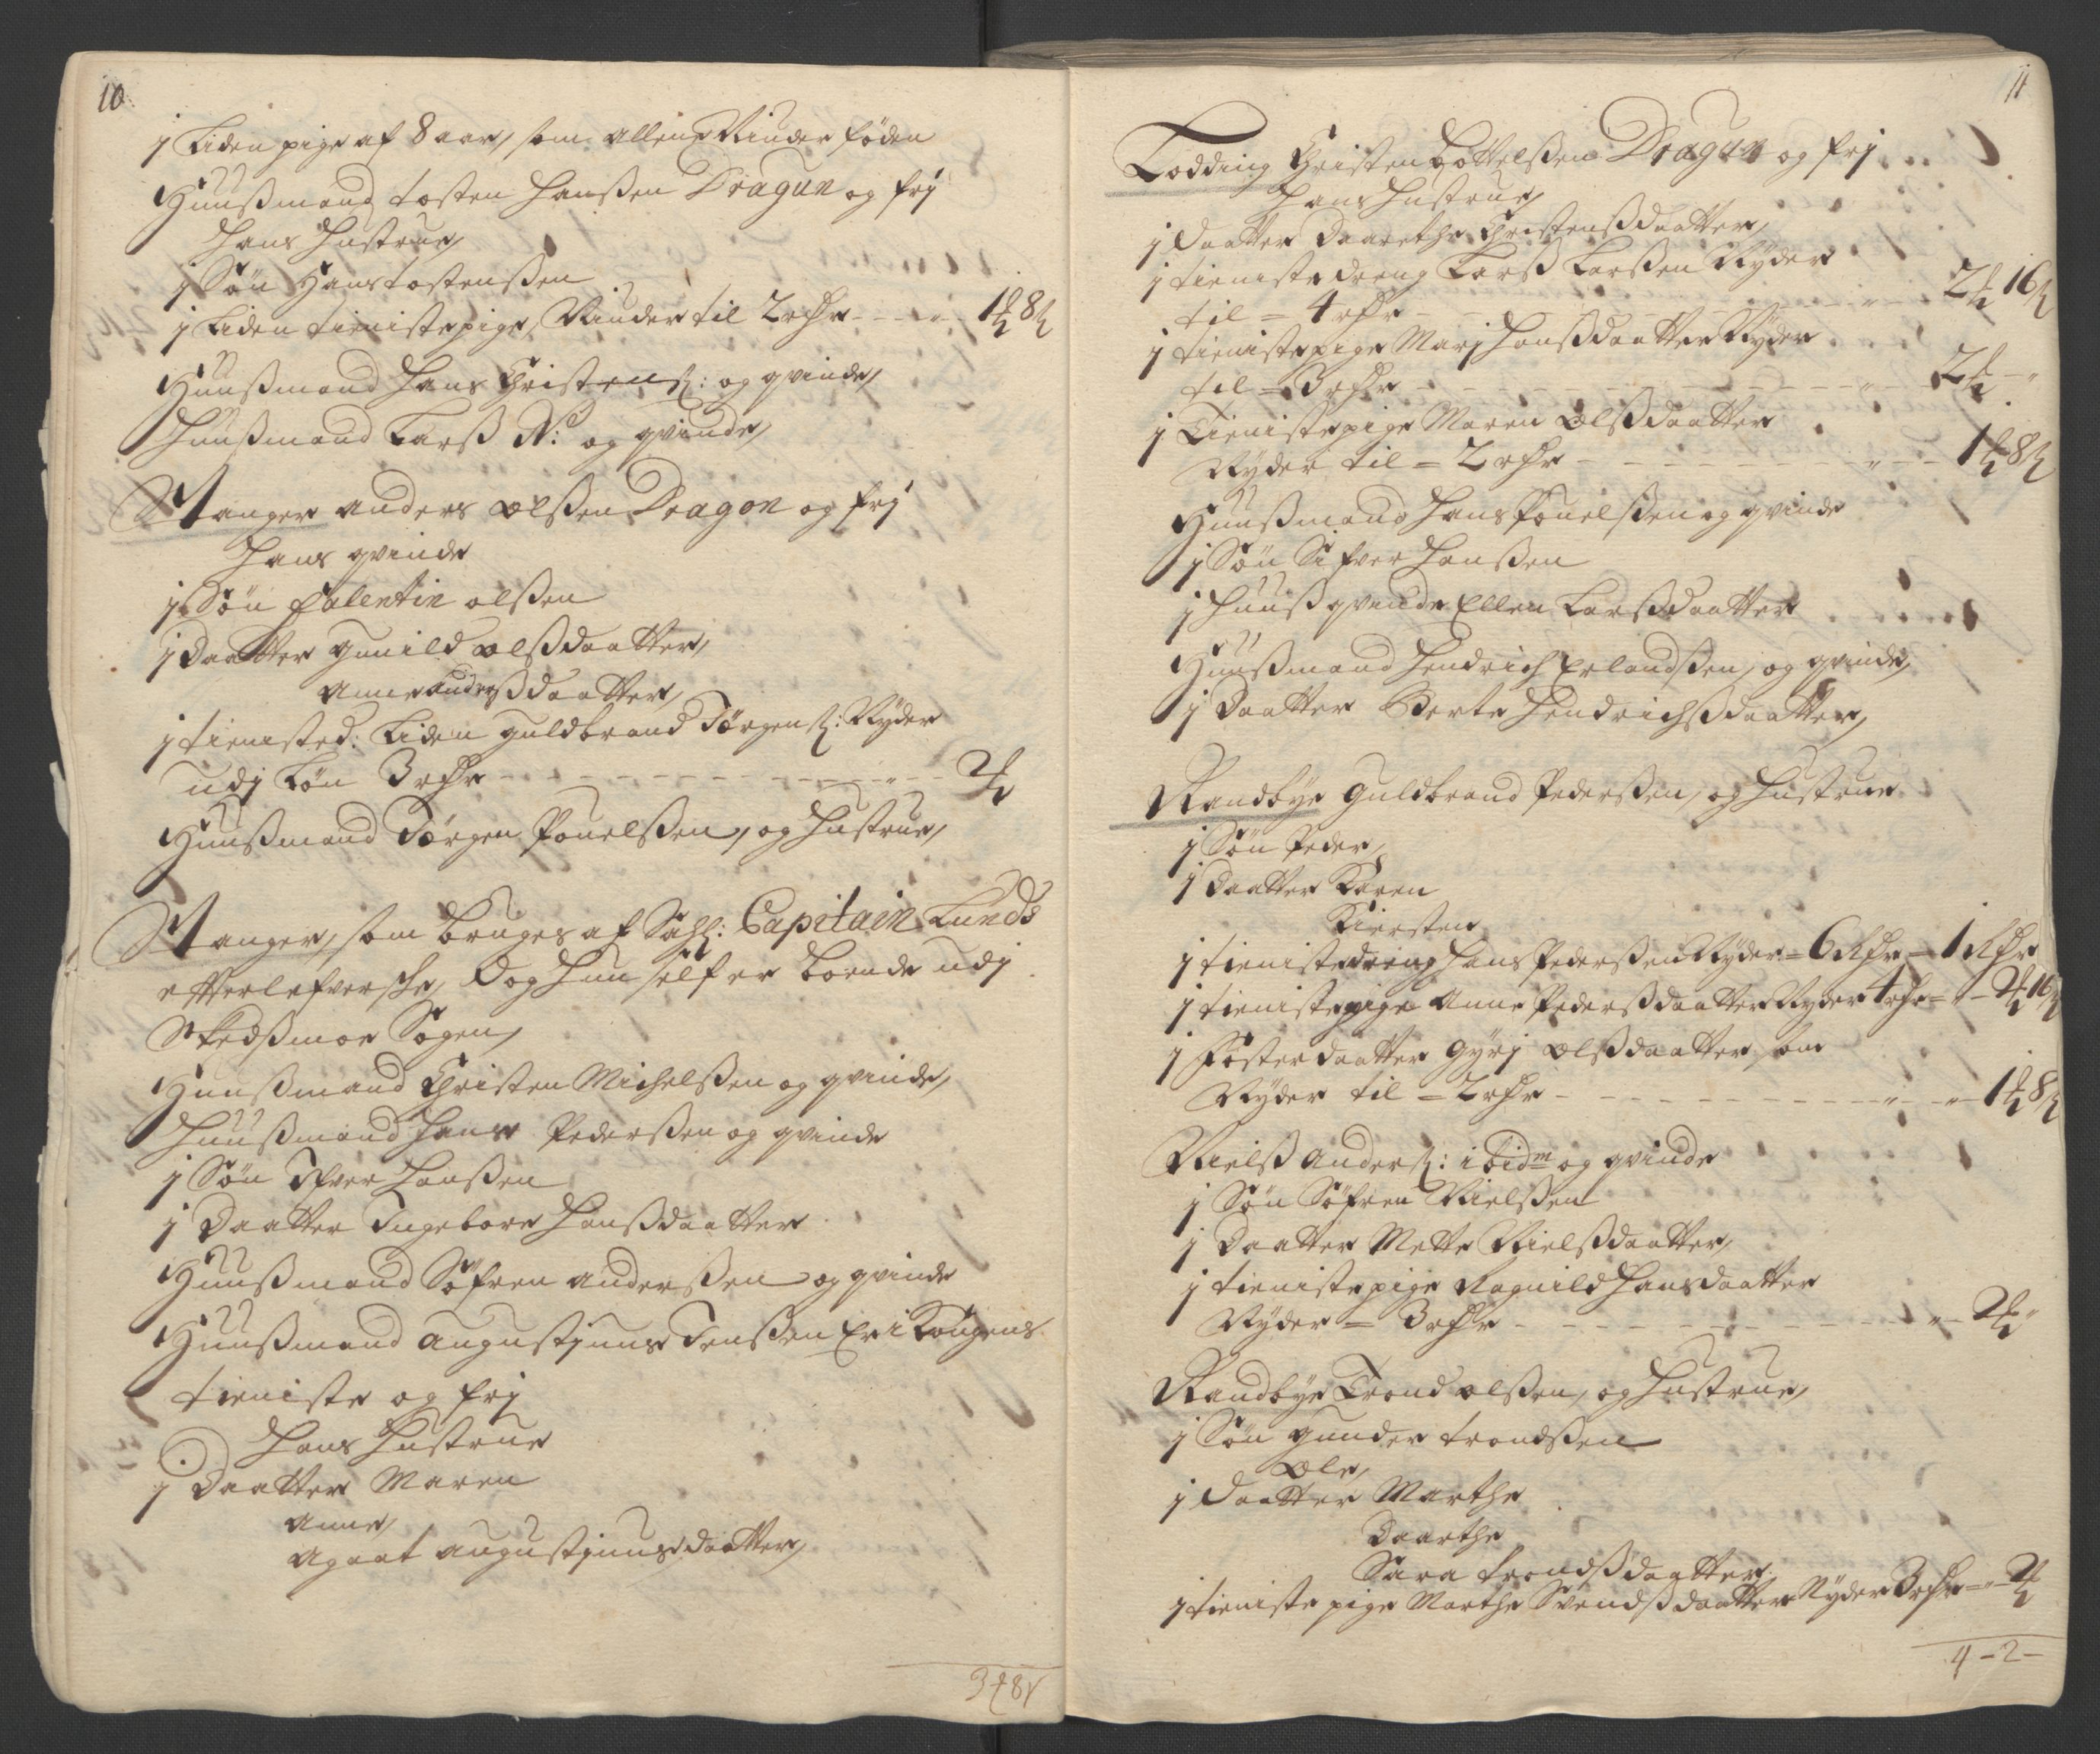 10
1 liden pige af 8 aar, som allene Niuder føden
Huusmand tosten Hanssen Dragun og frj
Hans Hustrue,
1 Søn Hans tostenssen
1 liden tienistepige, Niuder til 2 rdr - - - " - 1 ort 8 s
Huusmand Hans Christens: og qvinde,
Huusmand Larss N: og qvinde,
Stanger anders olssen Dragon og frj
Hans qvinde
1 Søn falentin olssen
1 Daatter gunild olssdaatter,
anne anderssdaatter,
1 tienisted: liden guldbrand Jørgens: Nyder
udj løn 3 rdr - - - - - - - - - " - 2 ort
Huusmand Jørgen Pouelssen, og Hustrue,
Stanger, som bruges af Sahl: Capitain Lunds
efterlefversche, Dog Hun self er boende udj
Skedsmoe Sogen,
Huusmand Christen Michelssen og qvinde,
Huusmand Hans Pederssen og qvinde
1 Søn Ifver Hanssen
1 Daatter Ingebore Hanssdaatter
Huusmand Søfren anderssen og qvinde
Huusmand augustinus Jenssen er i Kongens
tieniste og frj
Hans Hustrue
1 Daatter Maren
anne,
agaat augustinusdaatter,
3 ort 8 s
11
Lodding Christen Kottelssen Dragun og frj
Hans Hustrue,
1 Daatter Daarethe Christenssdaatter,
1 tieniste dreng Larss Larssen Nyder
til = 4 rdr - - - - - - - - " - 2 ort 16 s
1 tienistepige Marj Hanssdaatter Nyder
til = 3 rdr - - - - - - - - " - 2 ort "
1 Tienistepige Maren olssdaatter
Nyder til = 2 rdr - - - - - - - " - 1 ort 8 s
Huusmand Hans Pouelssen og qvinde
1 Søn Sifver Hanssen
1 Huuss qvinde Ellen Larssdaatter
Huusmand Hendrich Erlandssen, og qvinde,
1 Daatter Berte Hendrichssdaatter,
Randbye Guldbrand Pederssen, og Hustrue
1 Søn Peder,
1 Daatter Karen
Kiersten
1 tienistedreng Hans Pederssen Nyder = 6 Rdr = 1 Rdr
1 tienistepige Anne Pederssdaatter Nyder 4 rdr = " - 2 ort 16 s
1 Fosterdaatter Gyrj olssdaatter, som
Nyder til = 2 rdr - - - - - - - " - " - 1 ort 8 s
Nielss Anders: ibidm og qvinde
1 Søn Søfren Nielssen
1 Daatter Mette Nielssdaatter,
1 tienistepige Ragnild Hansdaatter
Nyder = 3 rdr - - - - - - - - - " - 2 ort "
Randbye Trond olssen, og Hustrue,
1 Søn gunder trondssen
ole,
1 Daatter Marthe
Daarthe
Sara trondssdaatter
1 tieniste pige Marthe Svendssdaatter Nyder 3 rdr = " - 2 ort
4 - 2 -